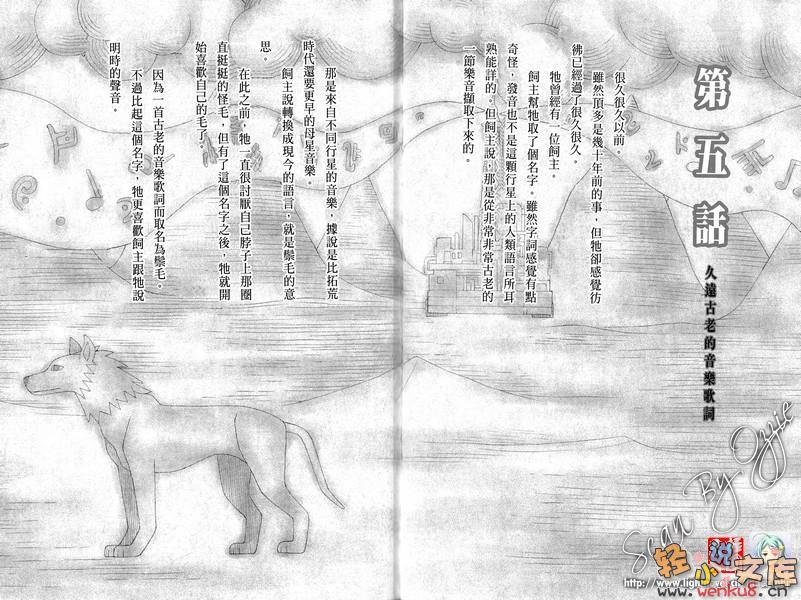 第五話
久遠古老的音樂歌詞
很久很久以前。
雖然頂多是幾十年前的事,但牠卻感覺彷
彿已經過了很久很久。
牠曾經有一位飼主。
飼主幫牠取了個名字。雖然字詞感覺有點
奇怪,發音也不是這顆行星上的人類語言所耳
熟能詳的。但飼主說,那是從非常非常古老的
一節樂音擷取下來的。
那是來自不同行星的音樂,據說是比拓荒
時代還要更早的母星音樂。
飼主說轉換成現今的語言,就是鬃毛的意
思。
在此之前,牠一直很討厭自己脖子上那圈
直挺挺的怪毛,但有了這個名字之後,牠就開
始喜歡自己的毛了。
因為一首古老的音樂歌詞而取名為鬃毛。
不過比起這個名字,牠更喜歡飼主跟牠說
明時的聲音。
Scan By Ozzie
轻小说文库
www.wenku8.cn